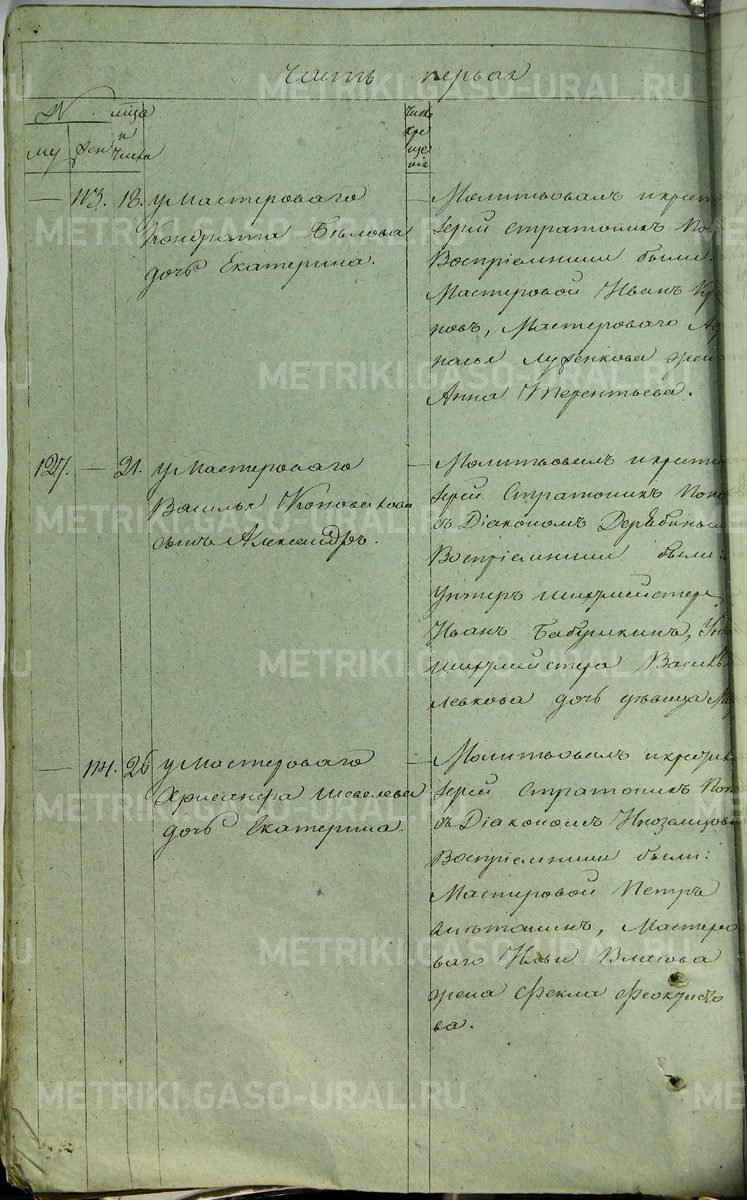 Часть первая
№ мѣсяца
му женъ и числа
число
кре
ще
нія
— 113. 18. у Мастероваго
Кондрата Бѣлова
дочь Екатерина.
— Молитвовалъ и крест
Іерей Стратоникъ Поп
Воспріемники были:
Мастеровой Иванъ
повъ, Мастероваго
насья Луженкова жена
Анна Терентьева.
127. — 21. у Мастероваго
Василья Коновалова
сынъ Александръ.
— Молитвовалъ и крестил
Іерей Стратоникъ Попо
съ Діакономъ Дерябинымъ
Воспріемники были:
Унтеръ шихтмейстеръ
Иванъ Бабушкинъ, Унт
шихтмейстера Василья
Левкова дочь дѣвица
— 114. 26 у Мастероваго
Хрисанфа Шевелева
дочь Екатерина.
— Молитвовалъ и крестил
Іерей Стратоникъ Попо
съ Діакономъ Иноземцовы
Воспріемники были:
Мастеровой Петръ
Мастеро
ваго Ильи Власова
жена Фекла Феоктисто
ва.
METRIKI.GASO-URAL.RU